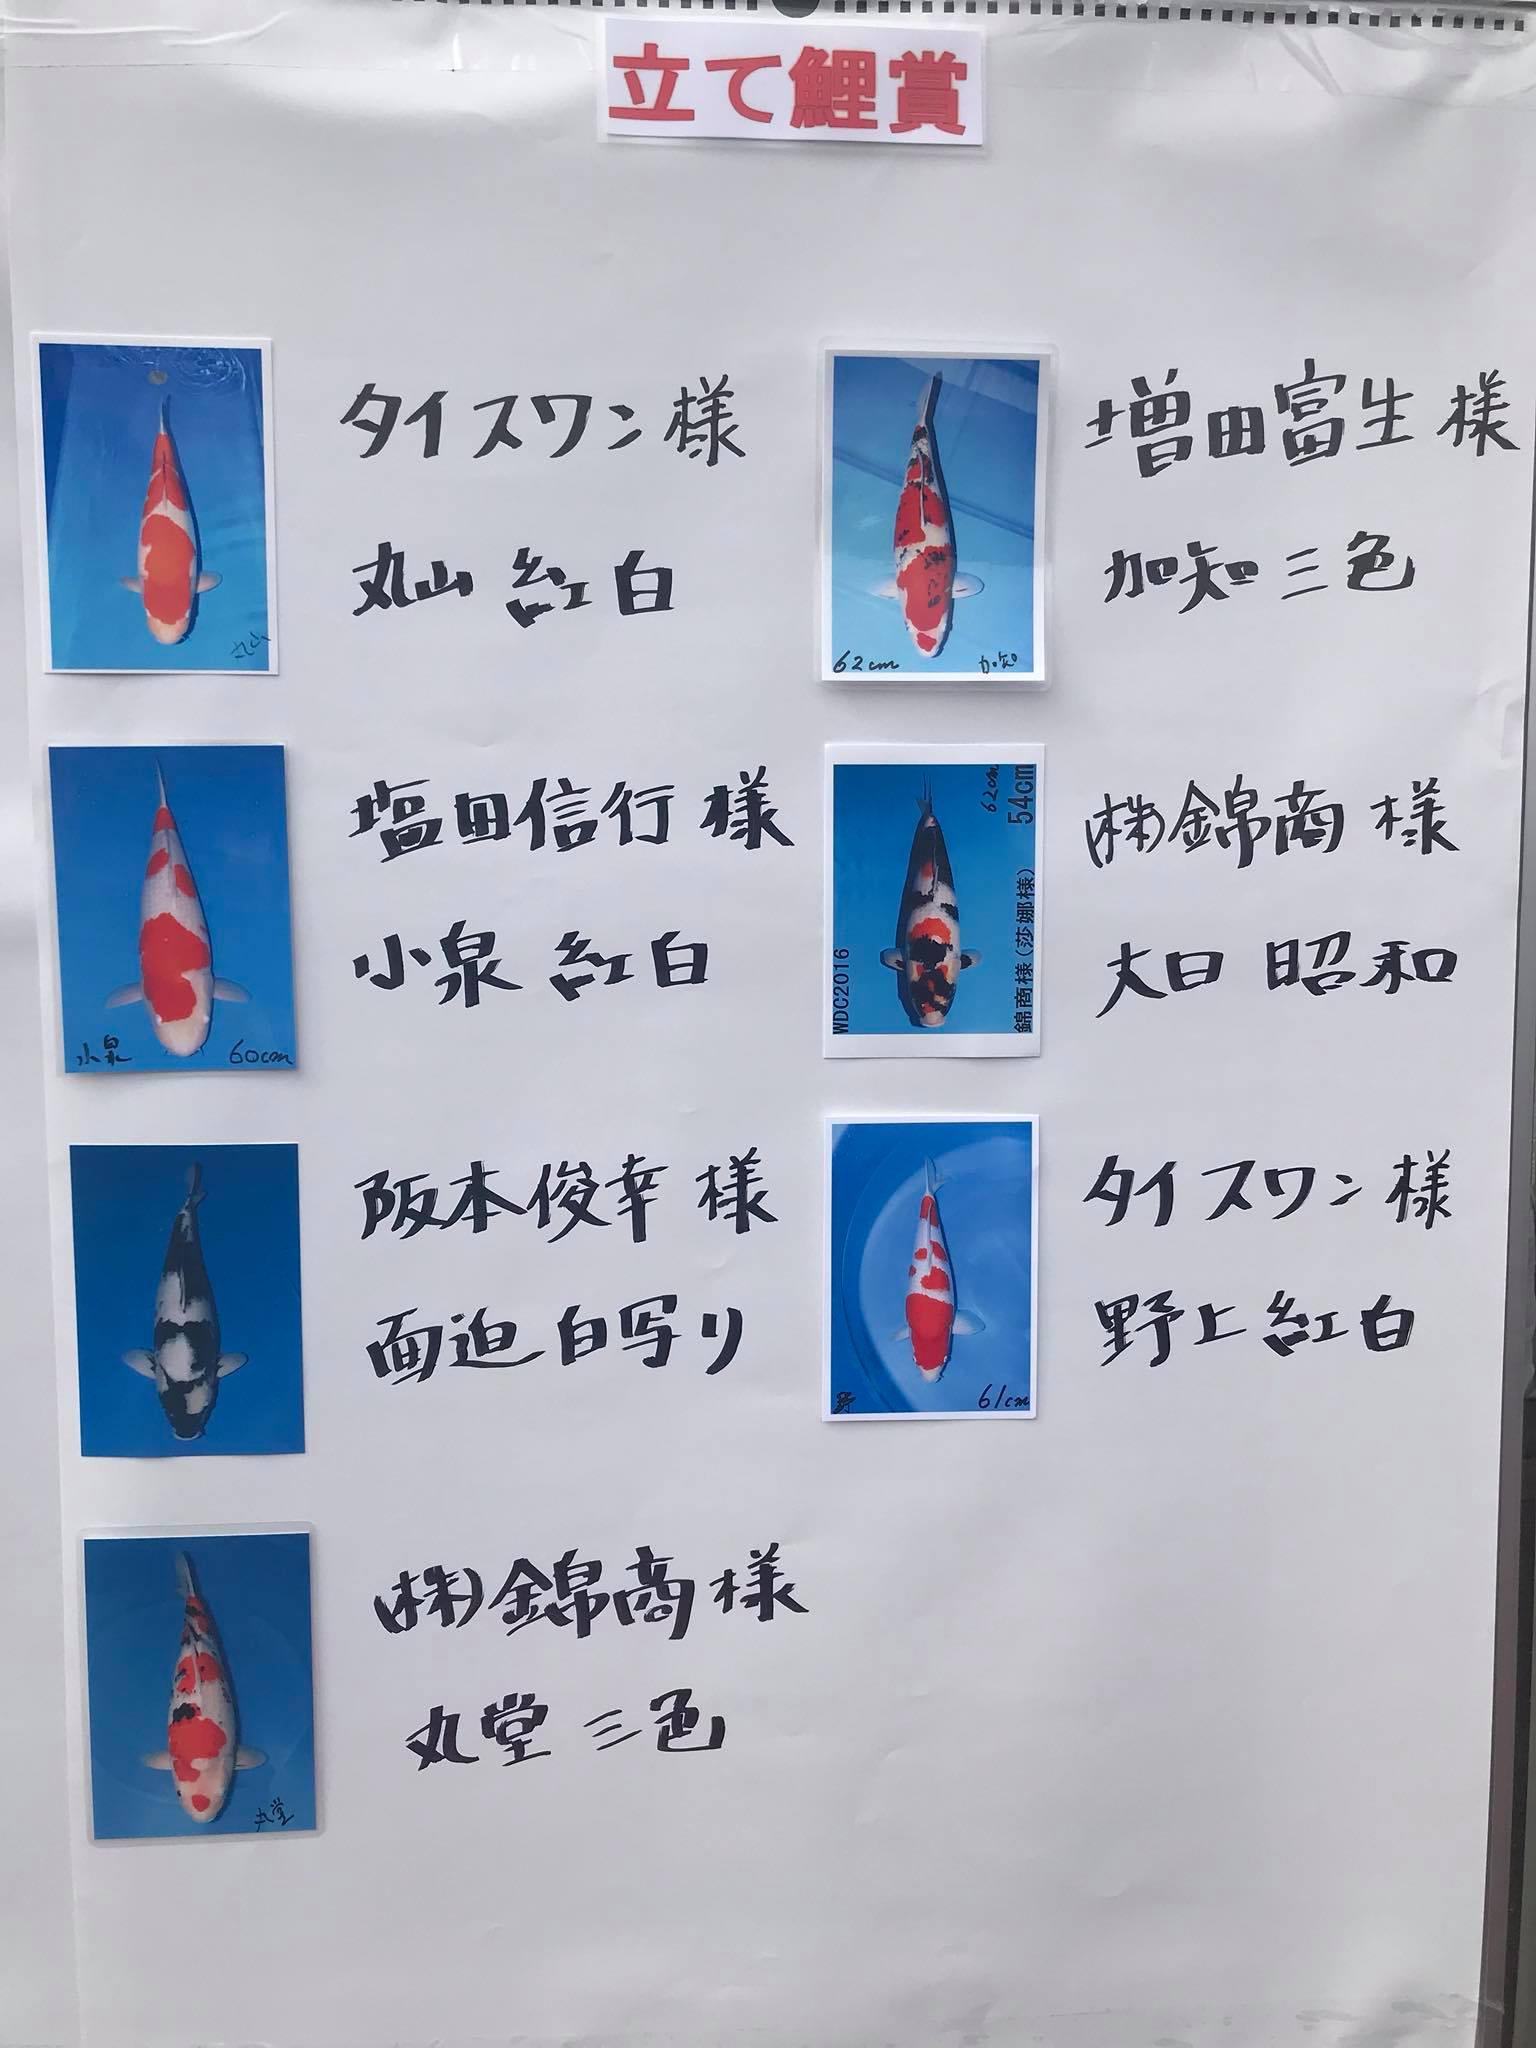 立て鯉賞
タイスワン様
丸山 紅白
丸山
塩田信行様
小泉 紅白
小泉
60cm
阪本俊幸様
面迫 白写り
(株)錦商様
丸堂 三色
丸堂
増田富生様
加知 三色
62cm
加知
(株)錦商様
大日 昭和
62cm
54cm
錦商様(莎娜様)
WDC2016
タイスワン様
野上 紅白
野
61cm